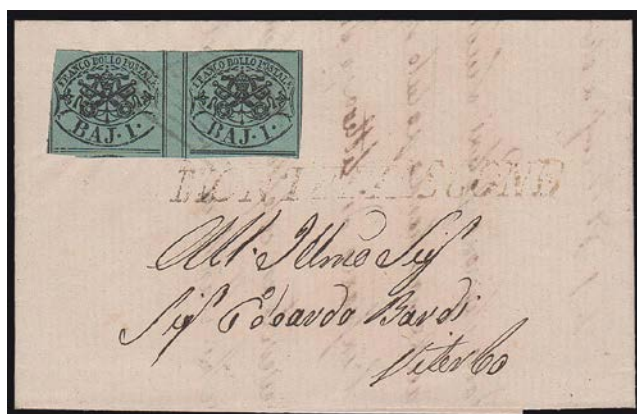 FRANCO BOLLO POSTALE
BAJ. 1.
FRANCO BOLLO POSTALE
BAJ. 1.
MONTEFIASCONE
All' Illmo Sig
Sig Edoardo Bardi
Viterbo